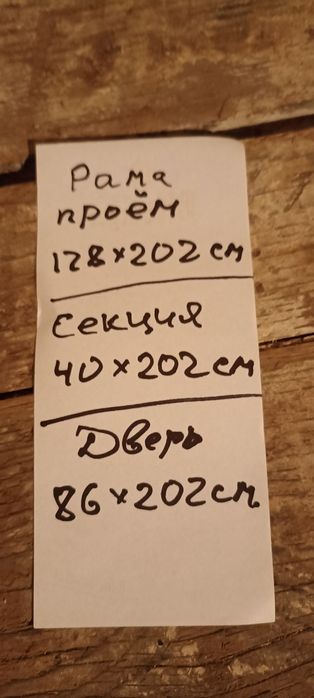 Рама
проём
128×202 см
секция
40×202 см
Дверь
86×202 см